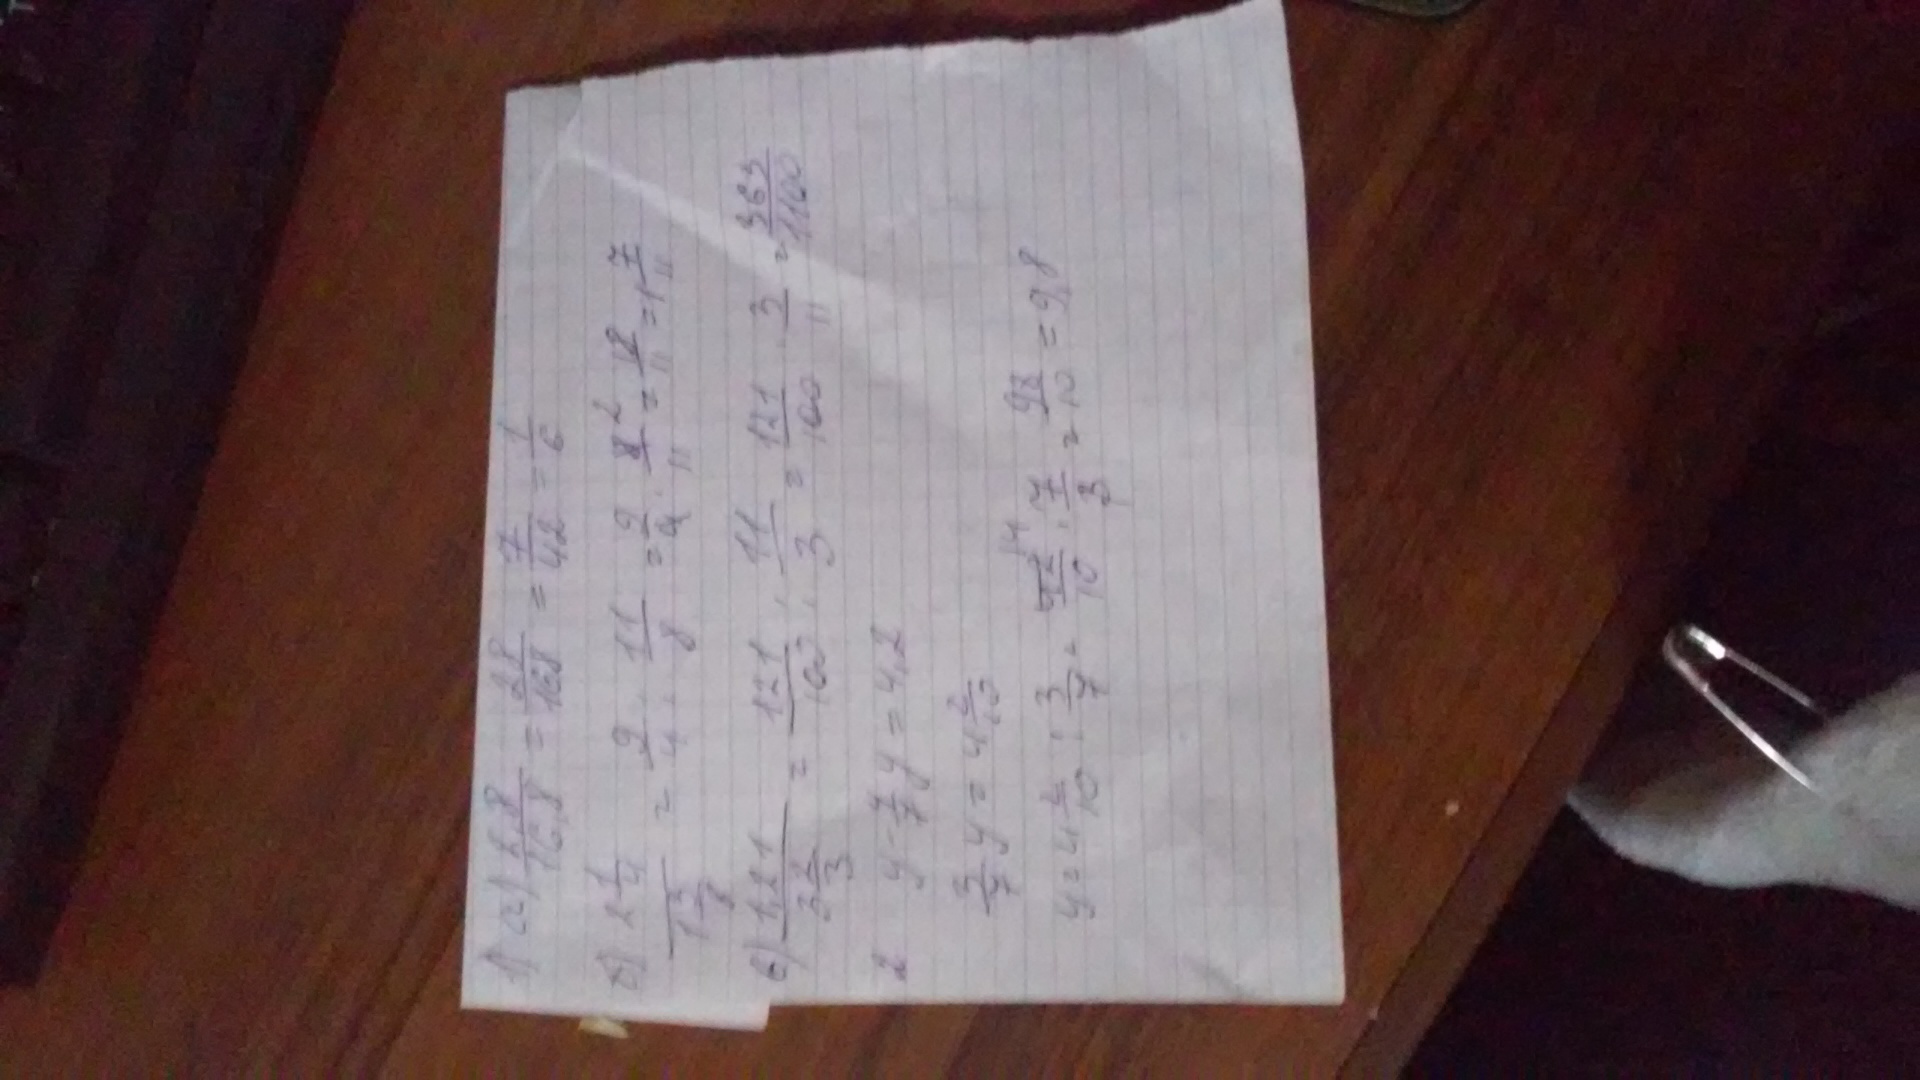 1) а) 2,8/16,8 = 28/168 = 7/42 = 1/6
б) 2 1/4 / 1 3/8 = 9/4 : 11/8 = 9/4 · 8/11 2 = 18/11 = 1 7/11
в) 1,21 / 3 2/3 = 121/100 : 11/3 = 121/100 · 3/11 = 363/1100
2 y - 4/7 y = 4,2
3/7 y = 4 2/10
y = 4 2/10 : 3/7 = 42/10 14 · 7/3 = 98/10 = 9,8